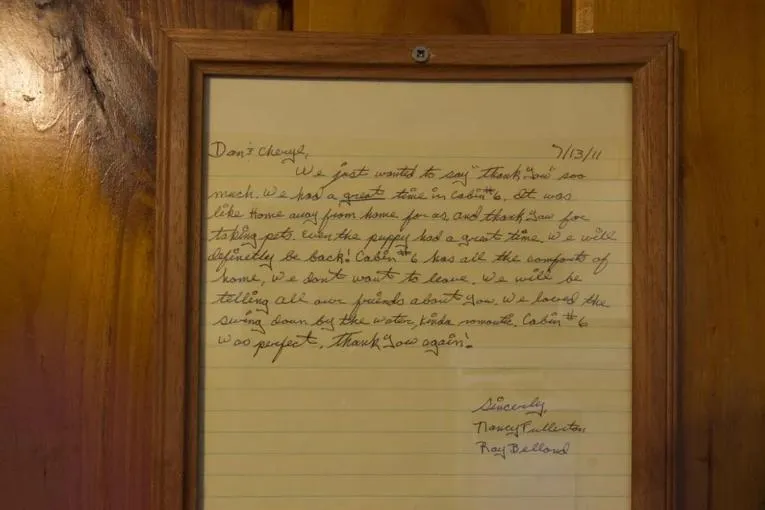 Dan & Cheryl, 7/13/11
We just wanted to say "Thank You" soo
much. We had a great time in Cabin #6. It was
like Home away from home for us and thank you for
taking pets. Even the puppy had a great time. We will
definetly be back! Cabin #6 has all the comforts of
home, We don't want to leave. We will be
telling all our friends about you. We loved the
swing down by the water, kinda romantic. Cabin #6
was perfect. Thank you again!
Sincerly,
Nancy Fullerton
Ray Bellond